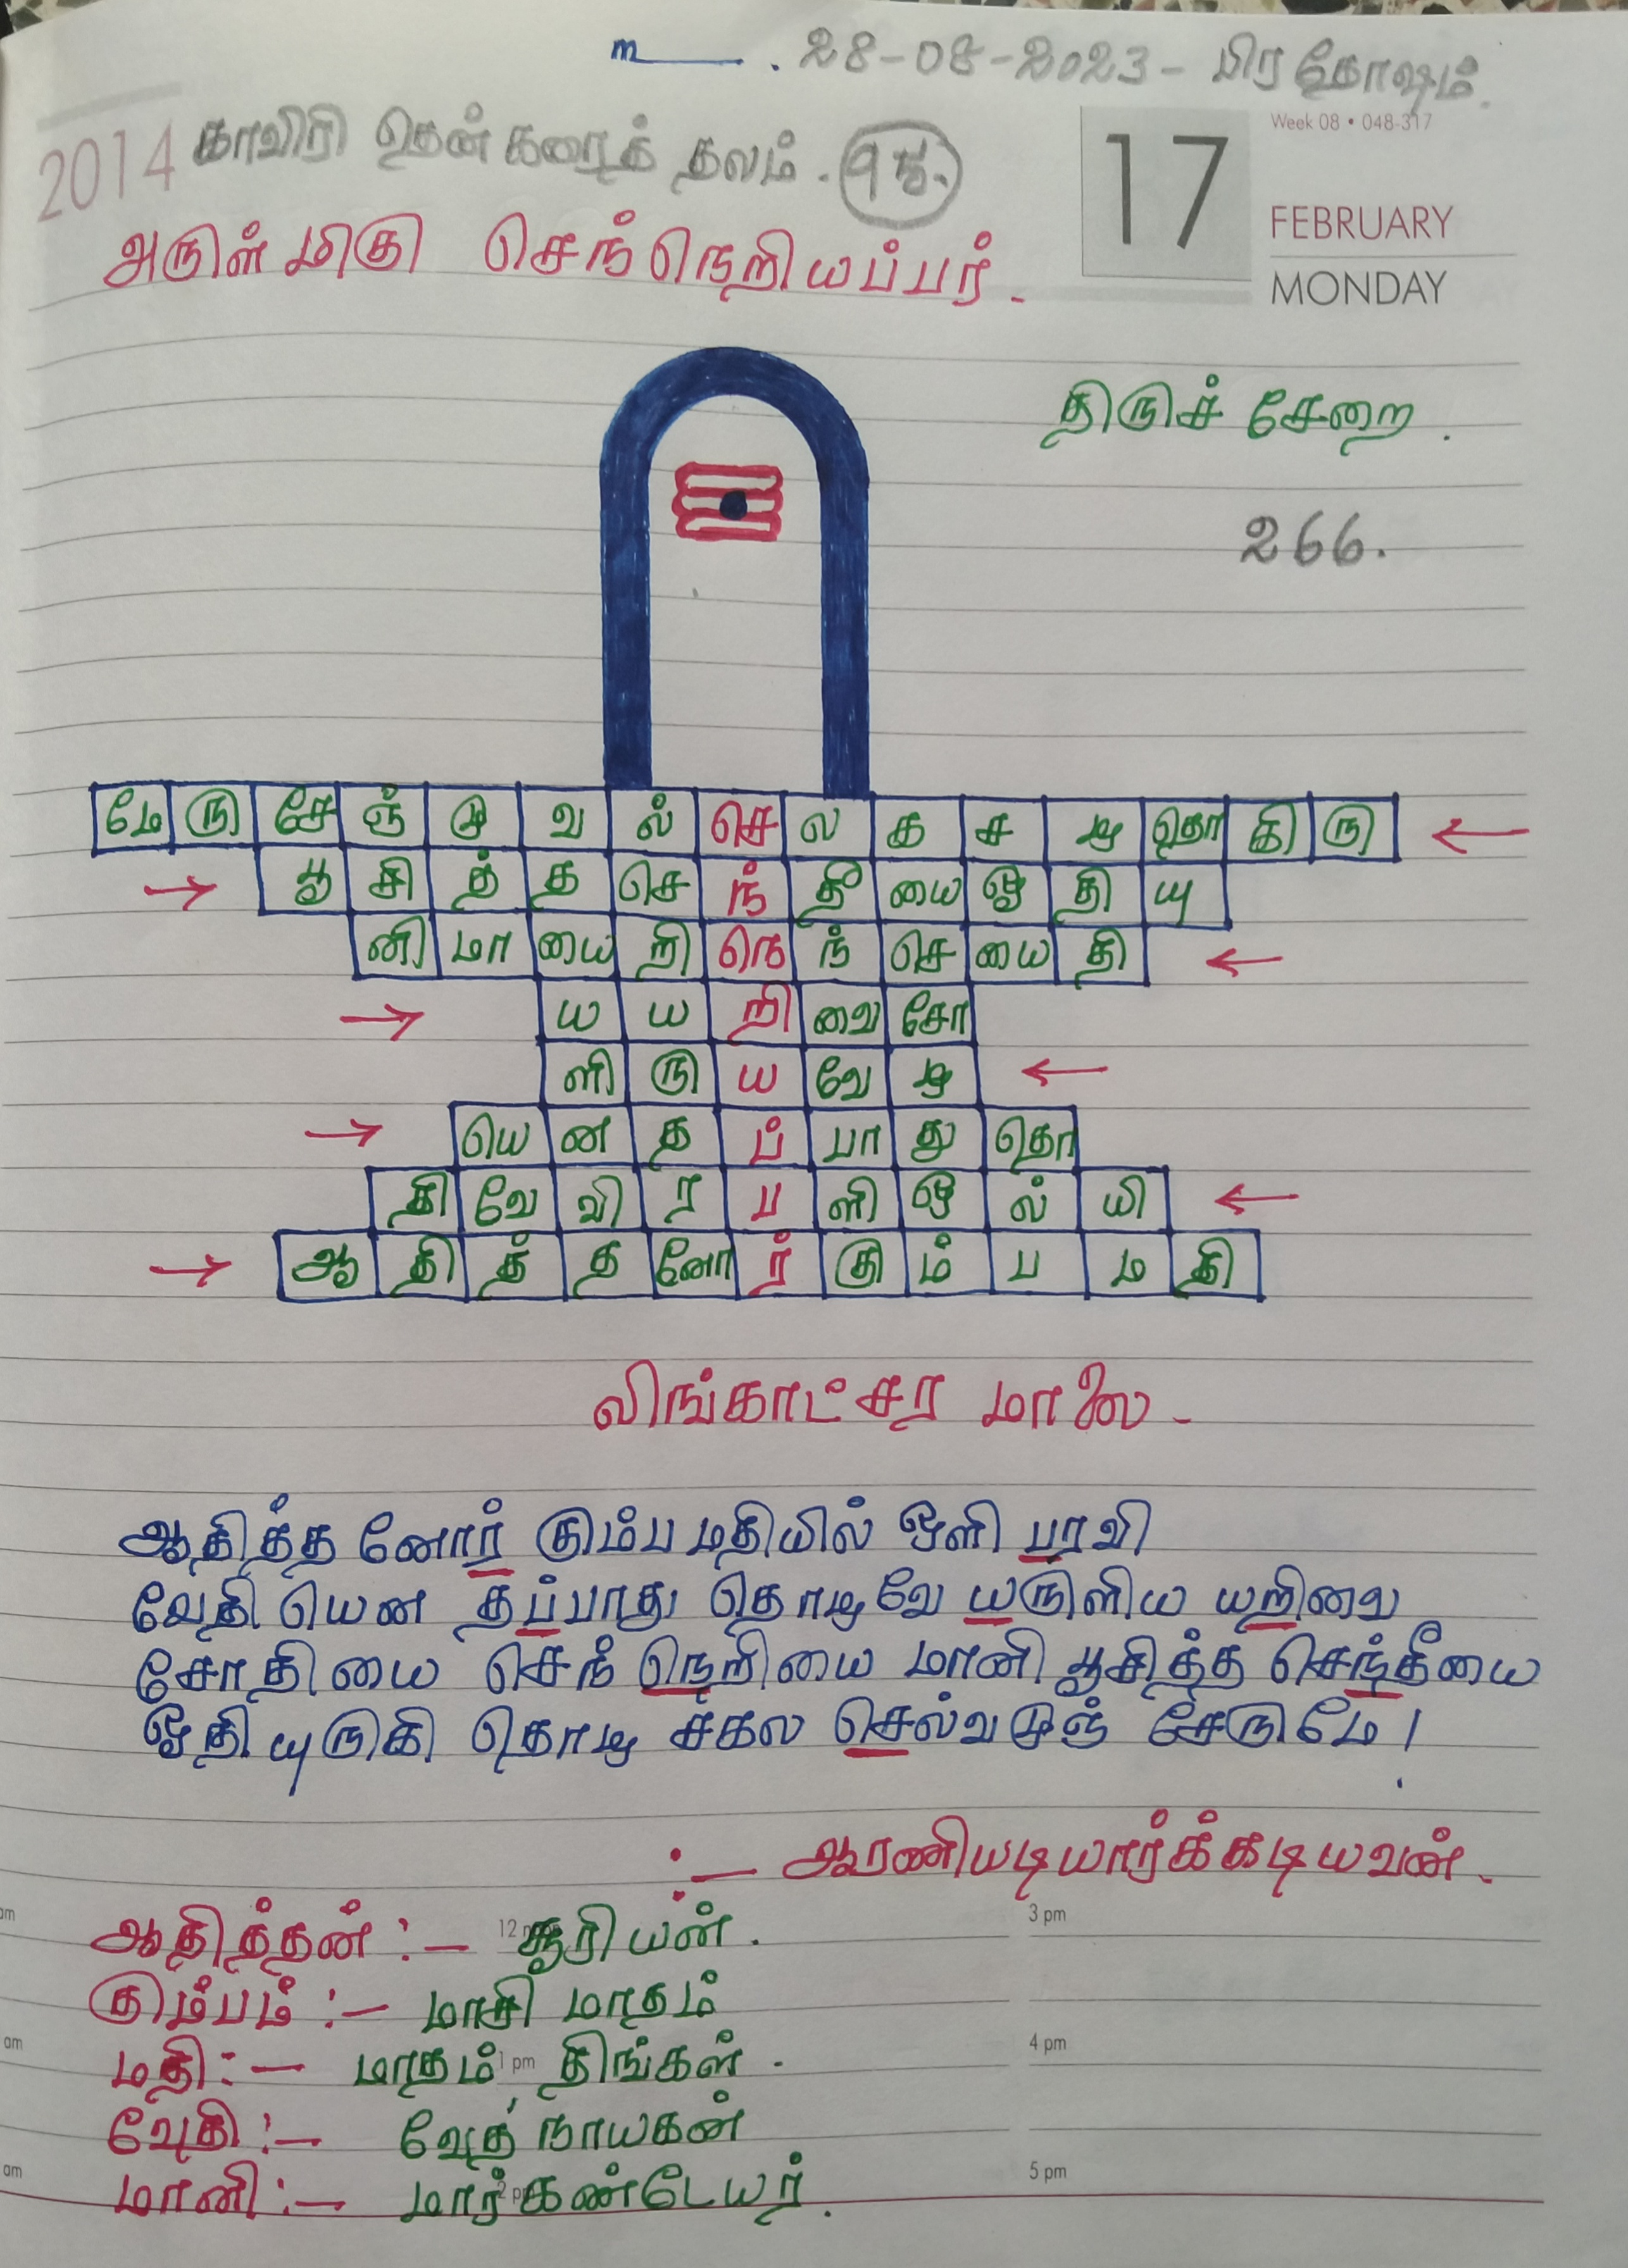 m . 28-08-2023 - பிரதோஷம்.
2014 காவிரி தென் கரைத் தலம். ௯௫.
17
Week 08 • 048-317
FEBRUARY
MONDAY
அருள் மிகு செந்நெறியப்பர்.
திருச் சேறை.
266.
மே ரு சே ஞ் மு வ ல் செ ல க ச ழ தொ கி ரு ←
→ பூ சி த் த செ ந் தீ யை ஓ தி யு
னி மா யை றி நெ ந் செ யை தி ←
→ ய ய றி வை சோ
ளி ரு ய வே ழ ←
→ யெ ன த ப் பா து தொ
தி வே வி ர ப ளி ஒ ல் யி ←
→ ஆ தி த் த னோ ர் கு ம் ப ம தி
லிங்காட்சர மாலை -
ஆதித்த னோர் கும்ப மதியில் ஒளி பரவி
வேதி யென தப்பாது தொழவே யருளிய யறிவை
சோதி யை செந் நெறியை மானி பூசித்த செந்தீயை
ஓதி யுருகி தொழ சகல செல்வ முஞ் சேரு மே !
:- ஆரணியடியார்க்கடியவன்.
ஆதித்தன் :- சூரியன்.
கும்பம் :- மாசி மாதம்
மதி :- மாதம் திங்கள்.
வேதி :- வேத நாயகன்
மானி :- மார்கண்டேயர்.
am
3 pm
am
1 pm
4 pm
am
2 pm
5 pm